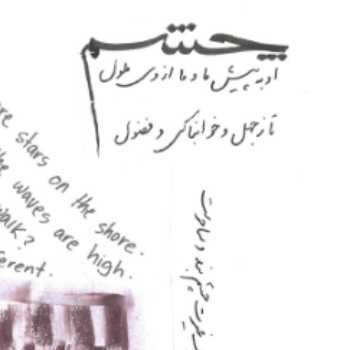 چشم
او به پیش ما و ما از وی ملول
تا ز جهل و خوابناکی و فضول
re stars on the shore.
he waves are high.
alk?
erent.